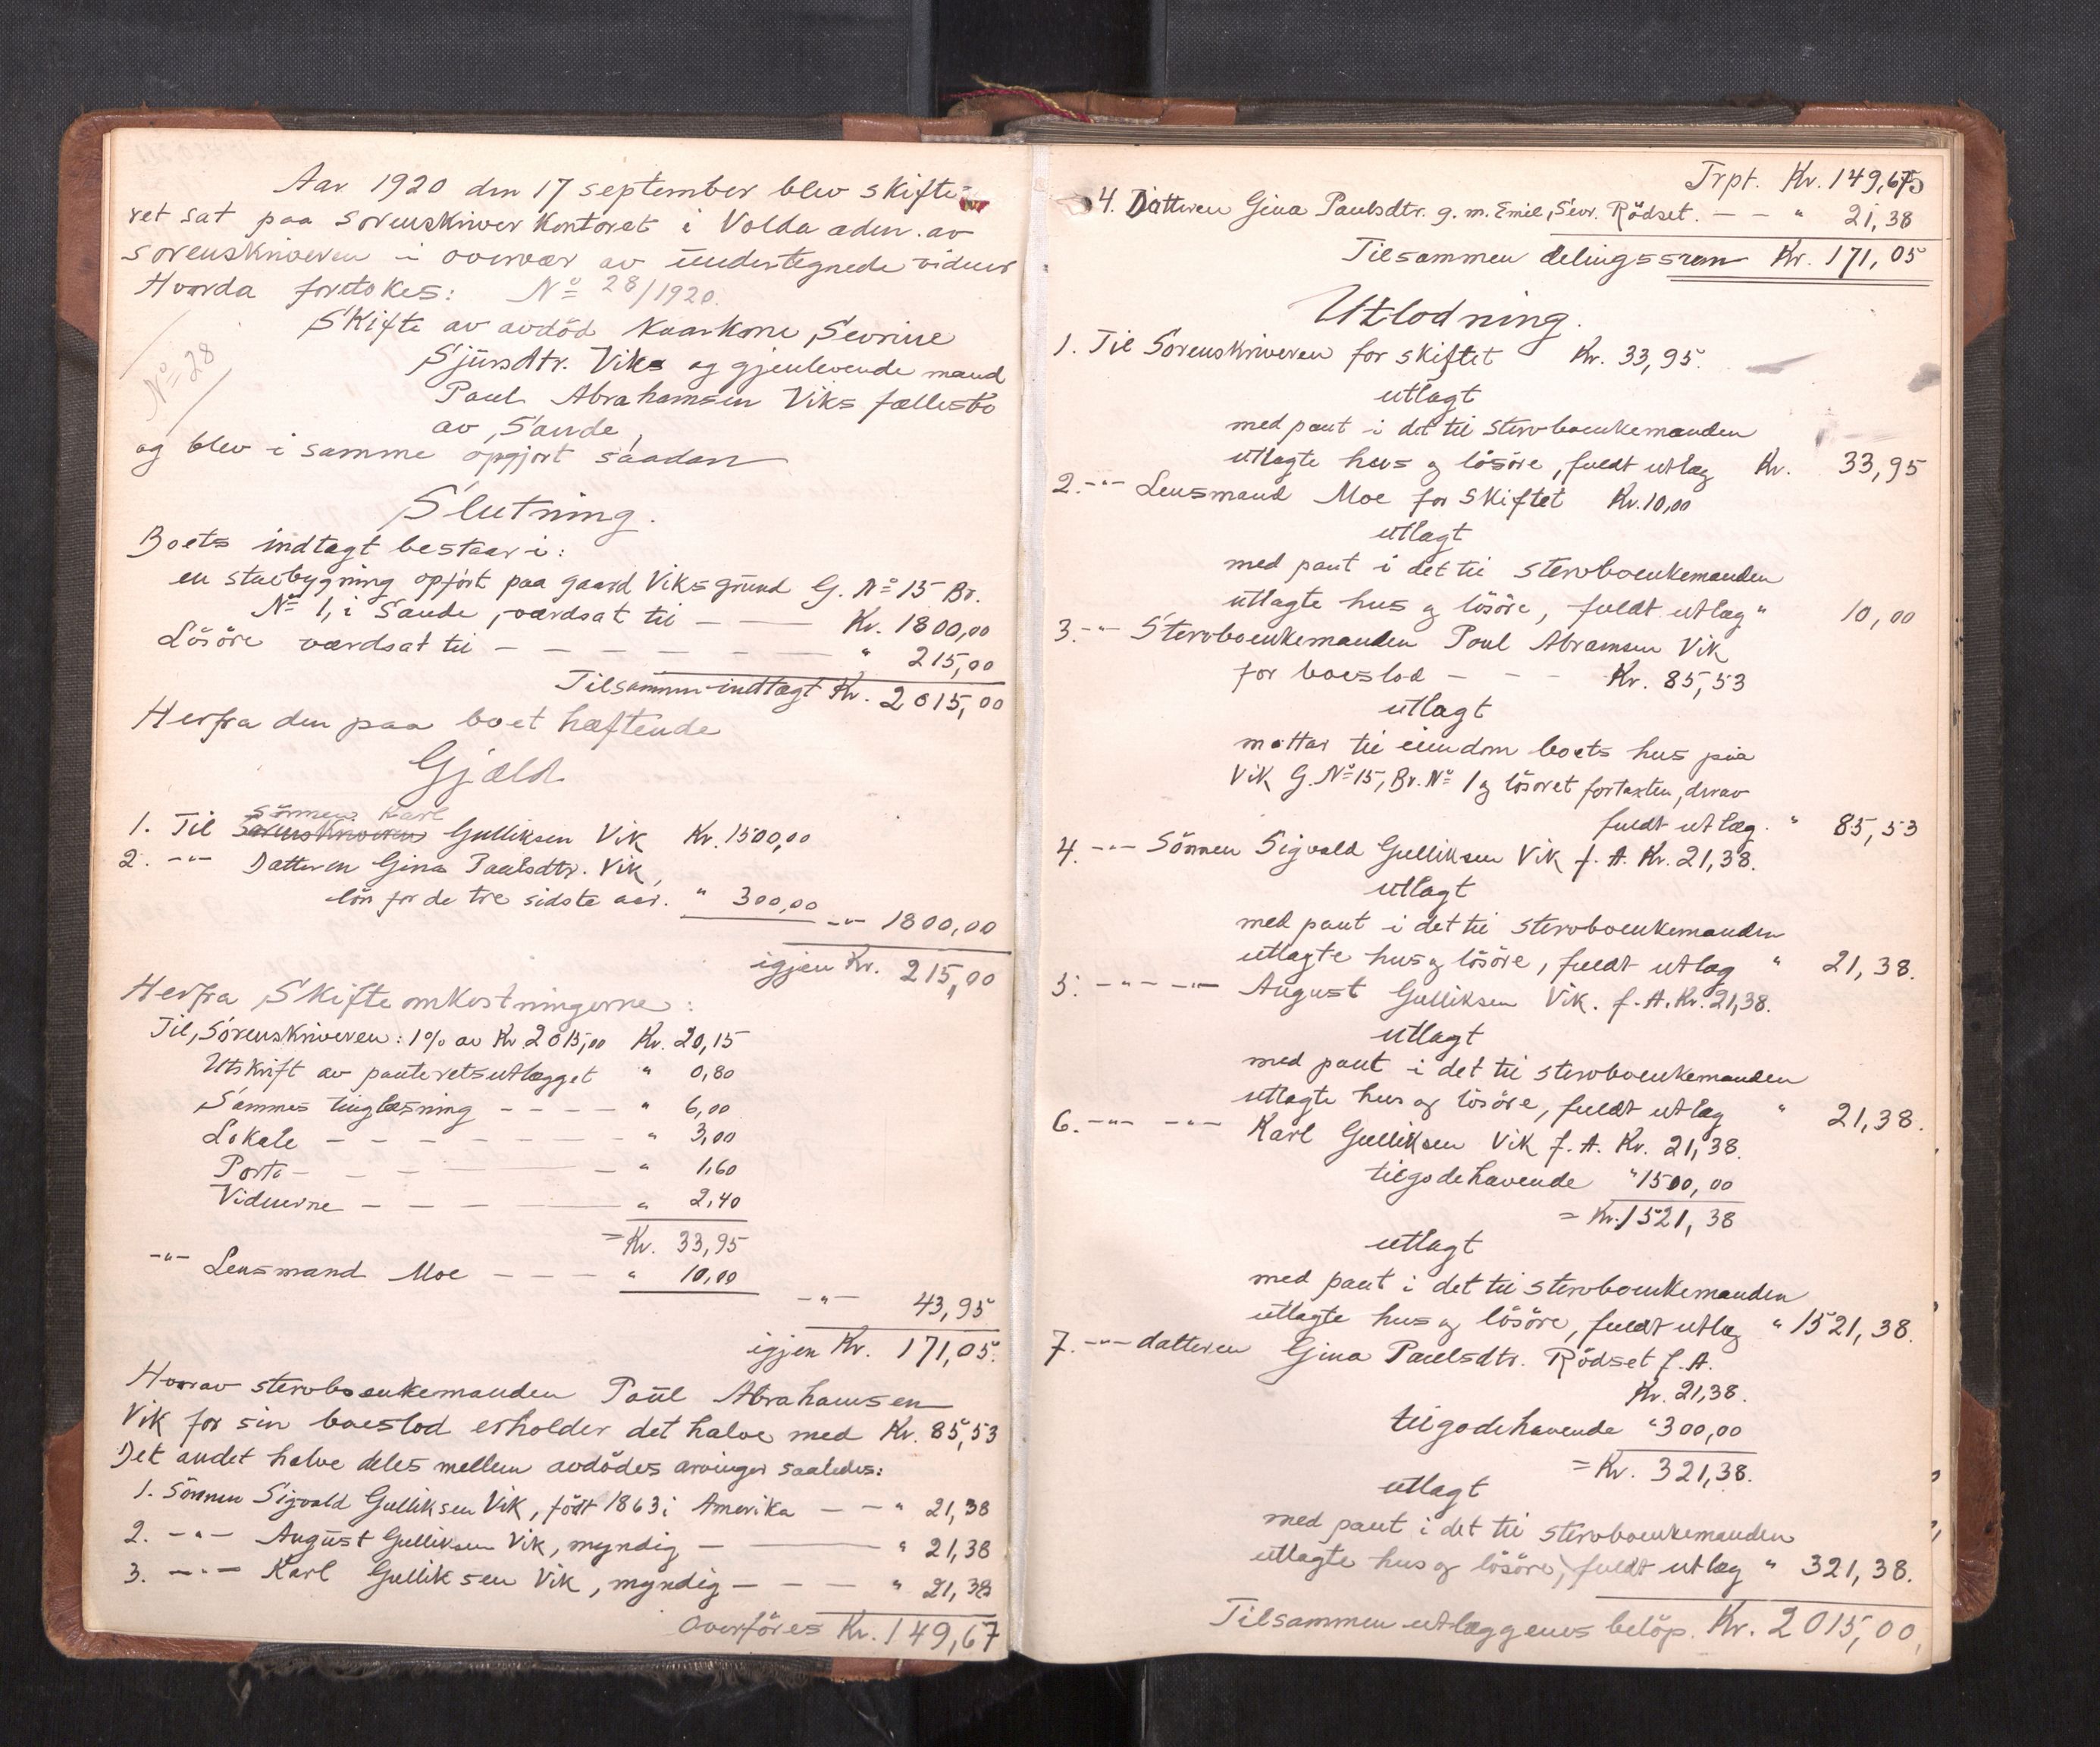 Aar 1920 den 17 september blev skifte-
ret sat paa sorenskriverkontoret i Volda adm. av
sorenskriveren i overvær av undertegnede vidner
Hvorda foretokes: No 28/1920.
No 28
Skifte av avdöd kaarkone Sevrine
Sjursdtr. Viks og gjenlevende mand
Paul Abrahamsen Viks fællesbo
av Sande,
og blev i samme opgjort saadan
Slutning.
Boets indtægt bestaar i:
en stuebygning opfört paa gaard Viks grund G. No 15 Br.
No 1, i Sande, værdsat til — — Kr. 1800,00
Lösöre værdsat til — — — — — — " 215,00
Tilsammen indtægt Kr. 2015,00
Herfra den paa boet hæftende
Gjæld
sönnen Karl
1. Til Sorenskriveren Gulliksen Vik Kr. 1500,00
2. -"- Datteren Gina Paulsdtr. Vik,
lön for de tre sidste aar. " 300,00
-"- 1800,00
igjen Kr. 215,00
Herfra Skifteomkostningerne:
Til Sorenskriveren: 1% av Kr 2015,00 Kr. 20,15
Utskrift av panteretsutlægget " 0,80
Sammes tinglæsning — — — — " 6,00
Lokale — — — — — — — " 3,00
Porto — — — — — " 1,60
Vidnerne — — — — " 2,40
= Kr. 33,95
-"- Lensmand Moe — — — " 10,00
-"- 43,95
igjen Kr. 171,05.
Hvorav stervboenkemanden Paul Abrahamsen
Vik for sin boeslod erholder det halve med Kr. 85,53
Det andet halve deles mellem avdödes arvinger saaledes:
1. Sönnen Sigvald Gulliksen Vik, födt 1863 i Amerika — — " 21,38
2. -"- August Gulliksen Vik, myndig — — " 21,38
3. -"- Karl Gulliksen Vik, myndig — — — " 21,38
Overföres Kr. 149,67
Trpt. Kr. 149,67
4. Datteren Gina Paulsdtr. g. m. Emil Sevr. Rödset. — — " 21,38
Tilsammen delingssum Kr. 171,05
Utlodning.
1. Til Sorenskriveren for skiftet Kr. 33,95.
utlagt
med pant i det til stervboenkemanden
utlagte hus og lösöre, fuldt utlæg Kr. 33,95
2. -"- Lensmand Moe for skiftet Kr. 10,00
utlagt
med pant i det til stervboenkemanden
utlagte hus og lösöre, fuldt utlæg " 10,00
3. -"- Stervboenkemanden Paul Abramsen Vik
for boeslod — — — Kr. 85,53
utlagt
mottar til eiendom boets hus paa
Vik G. No 15, Br. No 1 og lösöret for taxten, derav
fuldt utlæg. " 85,53
4. -"- Sönnen Sigvald Gulliksen Vik f. A. Kr. 21,38.
utlagt
med pant i det til stervboenkemanden
utlagte hus og lösöre, fuldt utlæg " 21,38.
5. -"- -"- August Gulliksen Vik. f. A. Kr. 21,38.
utlagt
med pant i det til stervboenkemanden
utlagte hus og lösöre, fuldt utlæg " 21,38.
6. -"- -"- Karl Gulliksen Vik f. A. Kr. 21,38.
tilgodehavende " 1500,00
= Kr. 1521,38
utlagt
med pant i det til stervboenkemanden
utlagte hus og lösöre, fuldt utlæg " 1521,38.
7. -"- datteren Gina Paulsdtr. Rödset f. A.
Kr. 21,38.
tilgodehavende " 300,00
= Kr. 321,38.
utlagt
med pant i det til stervboenkemanden
utlagte hus og lösöre, fuldt utlæg " 321,38.
Tilsammen utlæggenes belöp. Kr. 2015,00,